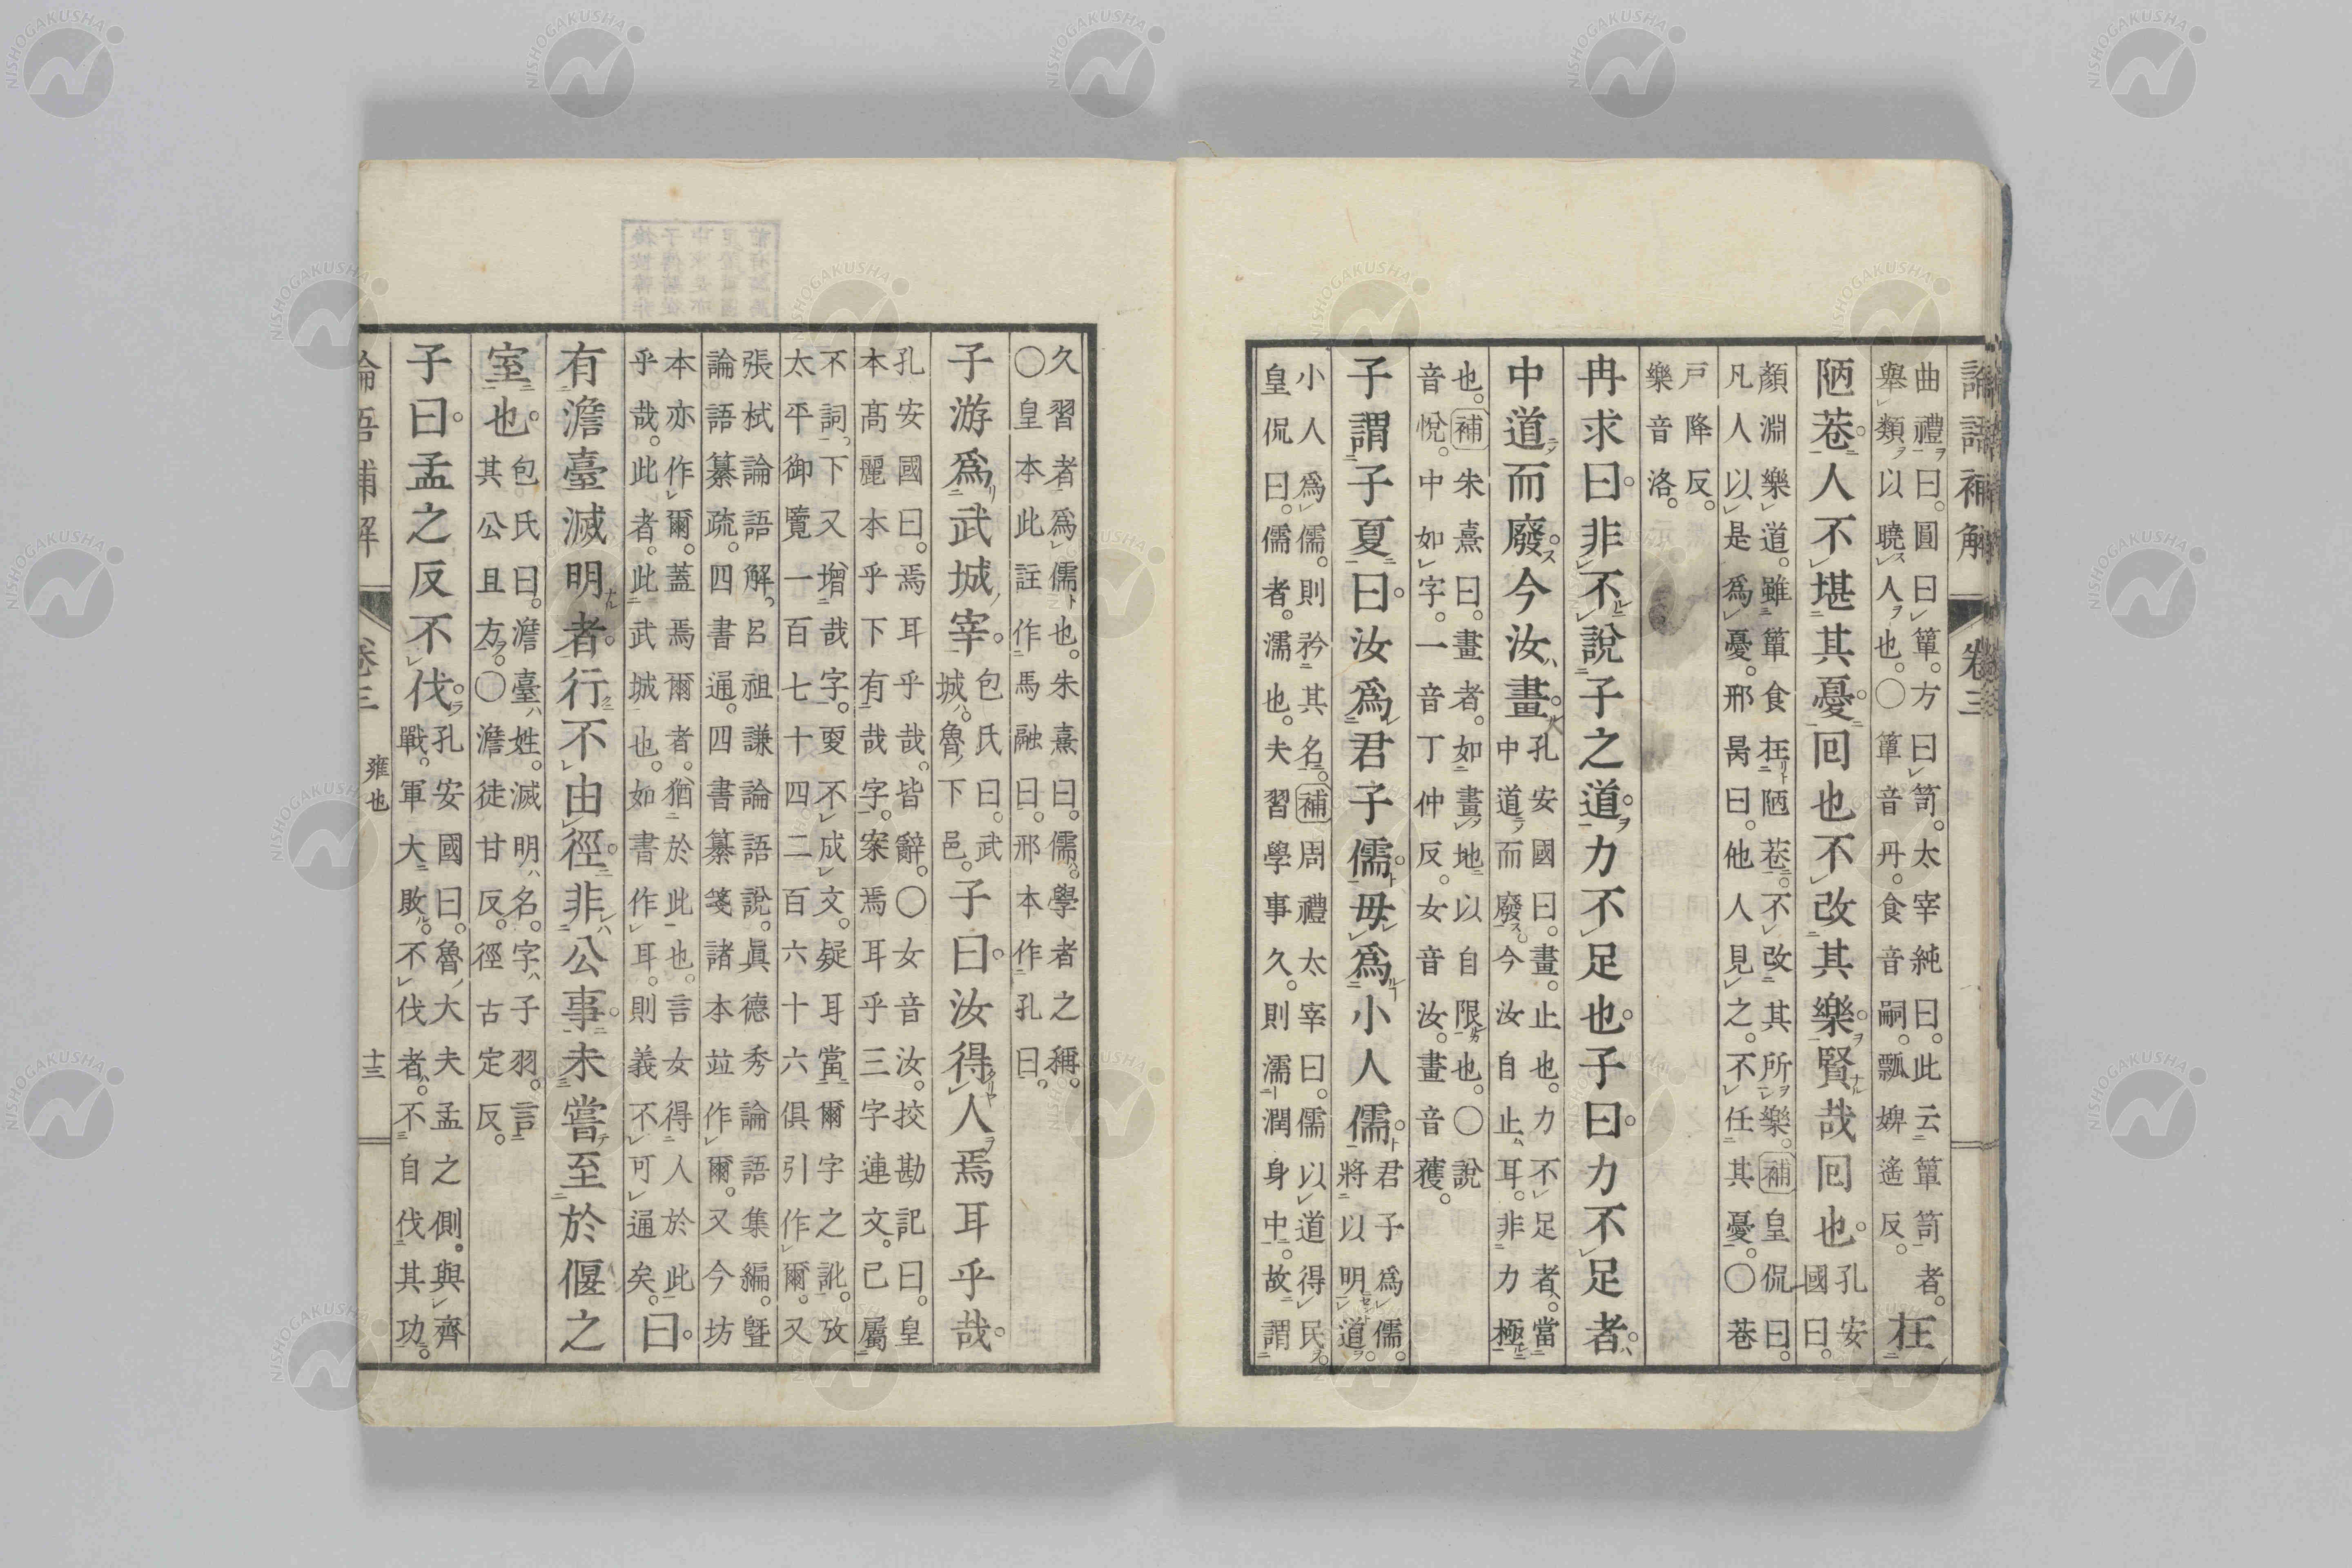 論語補解
卷三
曲禮曰。圓曰簞。方曰笥。太宰純曰。此云簞笥者。
擧類以曉人也。〇簞音丹。食音嗣。瓢婢遙反。
在
陋巷。人不堪其憂。回也不改其樂。賢哉回也。
孔安
國曰。
顏淵樂道。雖簞食在陋巷。不改其所樂。補皇侃曰。
凡人以是爲憂。邢昺曰。他人見之。不任其憂。〇巷
戸降反。
樂音洛。
冉求曰。非不說子之道。力不足也。子曰。力不足者。
中道而廢。今汝畫。
孔安國曰。畫。止也。力不足者。當
中道而廢。今汝自止耳。非力極
也。補朱熹曰。畫者。如畫地以自限也。〇說
音悅。中如字。一音丁仲反。女音汝。畫音獲。
子謂子夏曰。汝爲君子儒。毋爲小人儒。
君子爲儒。
將以明道。
小人爲儒。則矜其名。補周禮太宰曰。儒以道得民。
皇侃曰。儒者。濡也。夫習學事久。則濡潤身中。故謂
久習者爲儒也。朱熹曰。儒。學者之稱。
〇皇本此註作馬融曰。邢本作孔曰。
子游爲武城宰。
包氏曰。武
城。魯下邑。
子曰。汝得人焉耳乎哉。
孔安國曰。焉耳乎哉。皆辭。〇女音汝。挍勘記曰。皇
本高麗本乎下有哉字。案焉耳乎三字連文。已屬
不詞。下又增哉字。更不成文。疑耳當爾字之訛。攷
太平御覽一百七十四二百六十六俱引作爾。又
張栻論語解。呂祖謙論語說。眞德秀論語集編。曁
論語纂疏。四書通。四書纂箋諸本竝作爾。又今坊
本亦作爾。蓋焉爾者。猶於此也。言女得人於此
乎哉。此者。此武城也。如書作耳。則義不可通矣。
曰。
有澹臺滅明者。行不由徑。非公事。未嘗至於偃之
室也。
包氏曰。澹臺姓。滅明名。字子羽。言
其公且方。〇澹徒甘反。徑古定反。
子曰。孟之反不伐。
孔安國曰。魯大夫孟之側。與齊
戰。軍大敗。不伐者。不自伐其功。
論語補解
卷三
雍也
十三